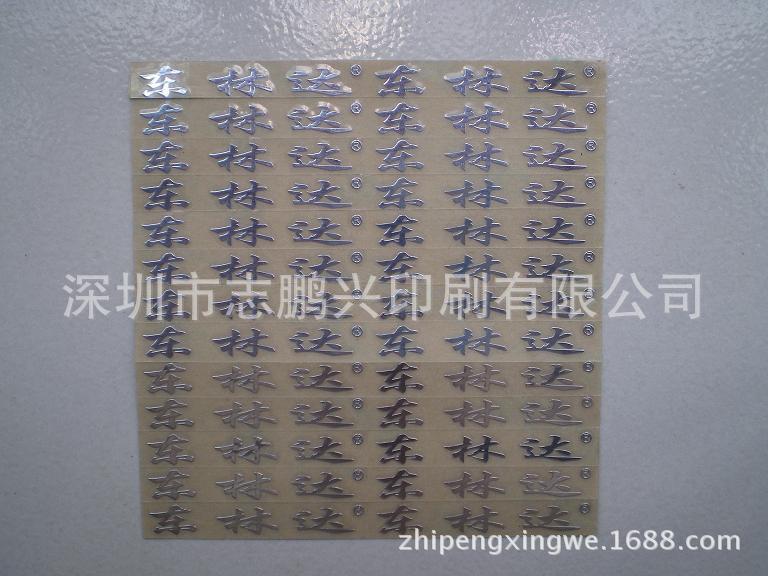 东林达® 东林达®
东林达® 东林达®
东林达® 东林达®
东林达® 东林达®
东林达® 东林达®
东林达® 东林达®
深圳市志鹏兴印刷有限公司
东林达® 东林达®
东林达® 东林达®
东林达® 东林达®
东林达® 东林达®
东林达® 东林达®
东林达® 东林达®
东林达® 东林达®
zhipengxingwe.1688.com